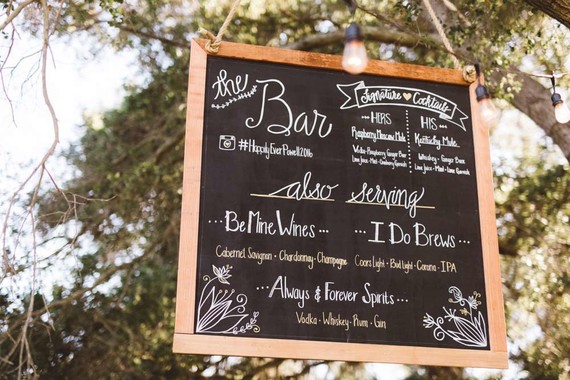 the Bar
#HappilyEverPowell2016
Signature Cocktails
HERS
Raspberry Moscow Mule
Vodka • Raspberry Ginger Beer
Lime Juice • Mint •
HIS
Kentucky Mule
Whiskey • Ginger Beer
Lime Juice • Mint • Lime
also serving
Be Mine Wines
Cabernet Sauvignon • Chardonnay • Champagne
I Do Brews
Coors Light • Bud Light • Corona • IPA
Always & Forever Spirits
Vodka • Whiskey • Rum • Gin